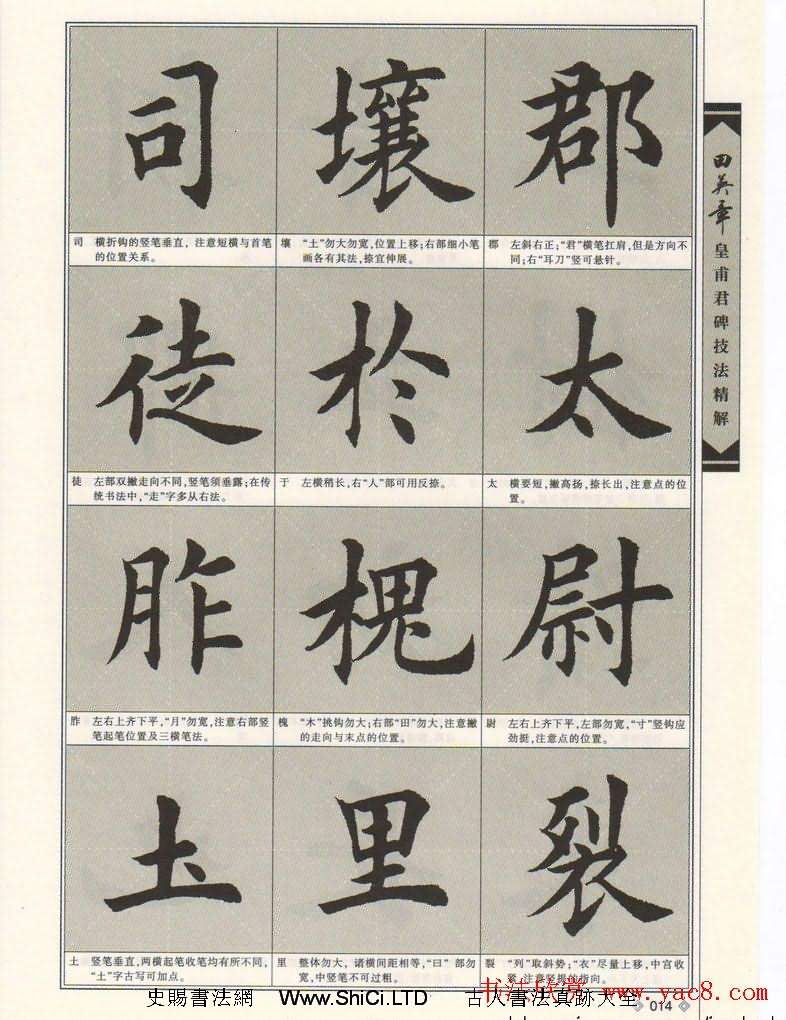 司 壤 郡
司 横折钩的竖笔垂直，注意短横与首笔
的位置关系。
壤 “土”勿大勿宽，位置上移；右部细小笔
画各有其法，捺宜伸展。
郡 左斜右正；“君”横笔扛肩，但是方向不
同；右“耳刀”竖可悬针。
徒 於 太
徒 左部双撇走向不同，竖笔须垂露；在传
统书法中，“走”字多从右法。
于 左横稍长，右“人”部可用反捺。
太 横要短，撇高扬，捺长出，注意点的位
置。
胙 槐 尉
胙 左右上齐下平，“月”勿宽，注意右部竖
笔起笔位置及三横笔法。
槐 “木”挑钩勿大；右部“田”勿大，注意撇
的走向与末点的位置。
尉 左右上齐下平，左部勿宽，“寸”竖钩应
劲挺，注意点的位置。
土 里 裂
土 竖笔垂直，两横起笔收笔均有所不同，
“土”字古写可加点。
里 整体勿大，诸横间距相等，“曰”部勿
宽，中竖笔不可过粗。
裂 “列”取斜势；“衣”尽量上移，中宫收
紧，注意竖提的指向。
田英章
皇甫君碑技法精解
史賜書法網 Www.ShiCi.LTD 古人書法真跡大全
书法欣赏 www.yac8.com
014